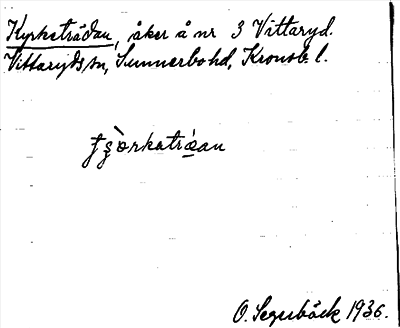 Kyrketrädan, åker å nr 3 Vittaryd.
Vittaryds sn, Sunnerbo hd, Kronob l.
O. Segerbäck 1936.